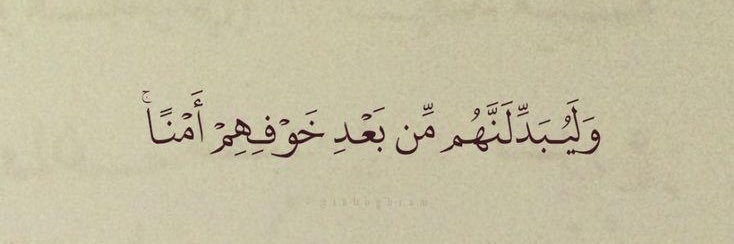 وَلَيُبَدِّلَنَّهُم مِّن بَعْدِ خَوْفِهِمْ أَمْنًا ۚ